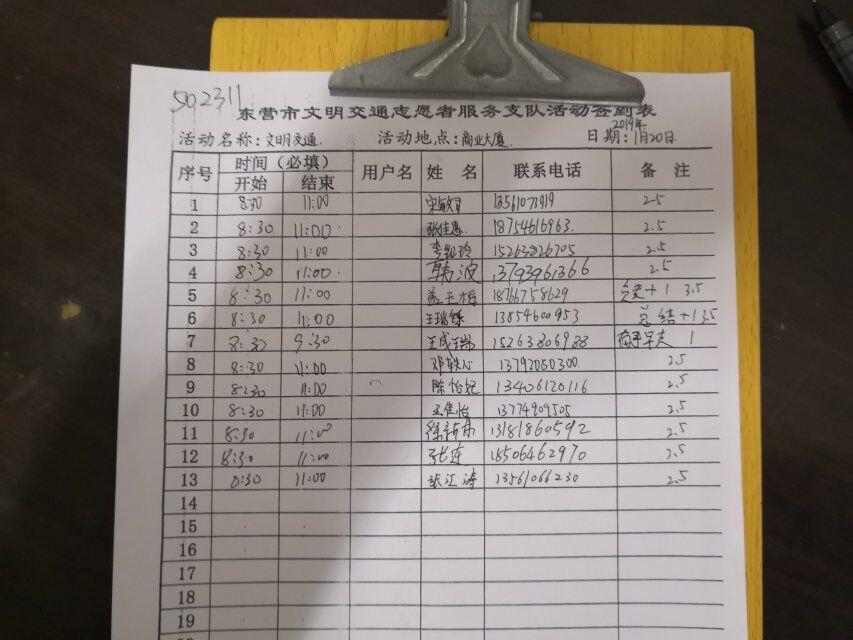 502311
东营市文明交通志愿者服务支队活动签到表
活动名称:文明交通 活动地点:商业大厦 日期:2019年1月20日
序号 时间(必填) 用户名 姓名 联系电话 备注
开始 结束
1 8:30 11:00 2.5
2 8:30 11:00 张佳惠 18754616963 2.5
3 8:30 11:00 15263826705 2.5
4 8:30 11:00 韩波 13793961366 2.5
5 8:30 11:00 盖玉梅 18766758629 +1 3.5
6 8:30 11:00 王瑞 13854600953 总结+1 3.5
7 8:30 9:30 王成瑞 15263806988 有事早走 1
8 8:30 11:00 邓轶心 13792050300 2.5
9 8:30 11:00 陈怡妃 13406120116 2.5
10 8:30 11:00 孟佳怡 13774909505 2.5
11 8:30 11:00 徐 13181860592 2.5
12 8:30 11:00 张莲 18506462970 2.5
13 0:30 11:00 张江涛 13561066230 2.5
14
15
16
17
18
19